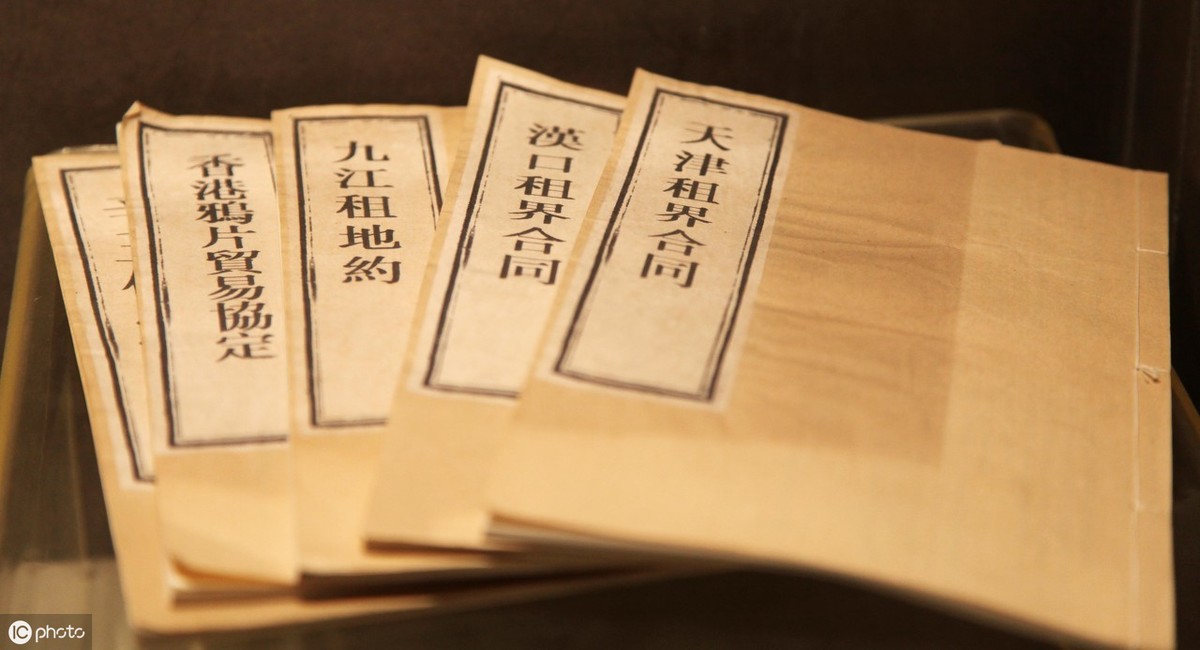 天津租界合同
漢口租界合同
九江租地約
香港鴉片貿易協定
IC photo